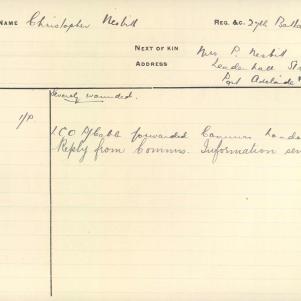 NAME Christopher Nesbitt REG. &C. 27th Batta
NEXT OF KIN Mrs P. Nesbitt
ADDRESS Leadenhall St
Port Adelaide
Severely wounded.
1/P 1.CO forwarded London
Reply from Comms. Information sen